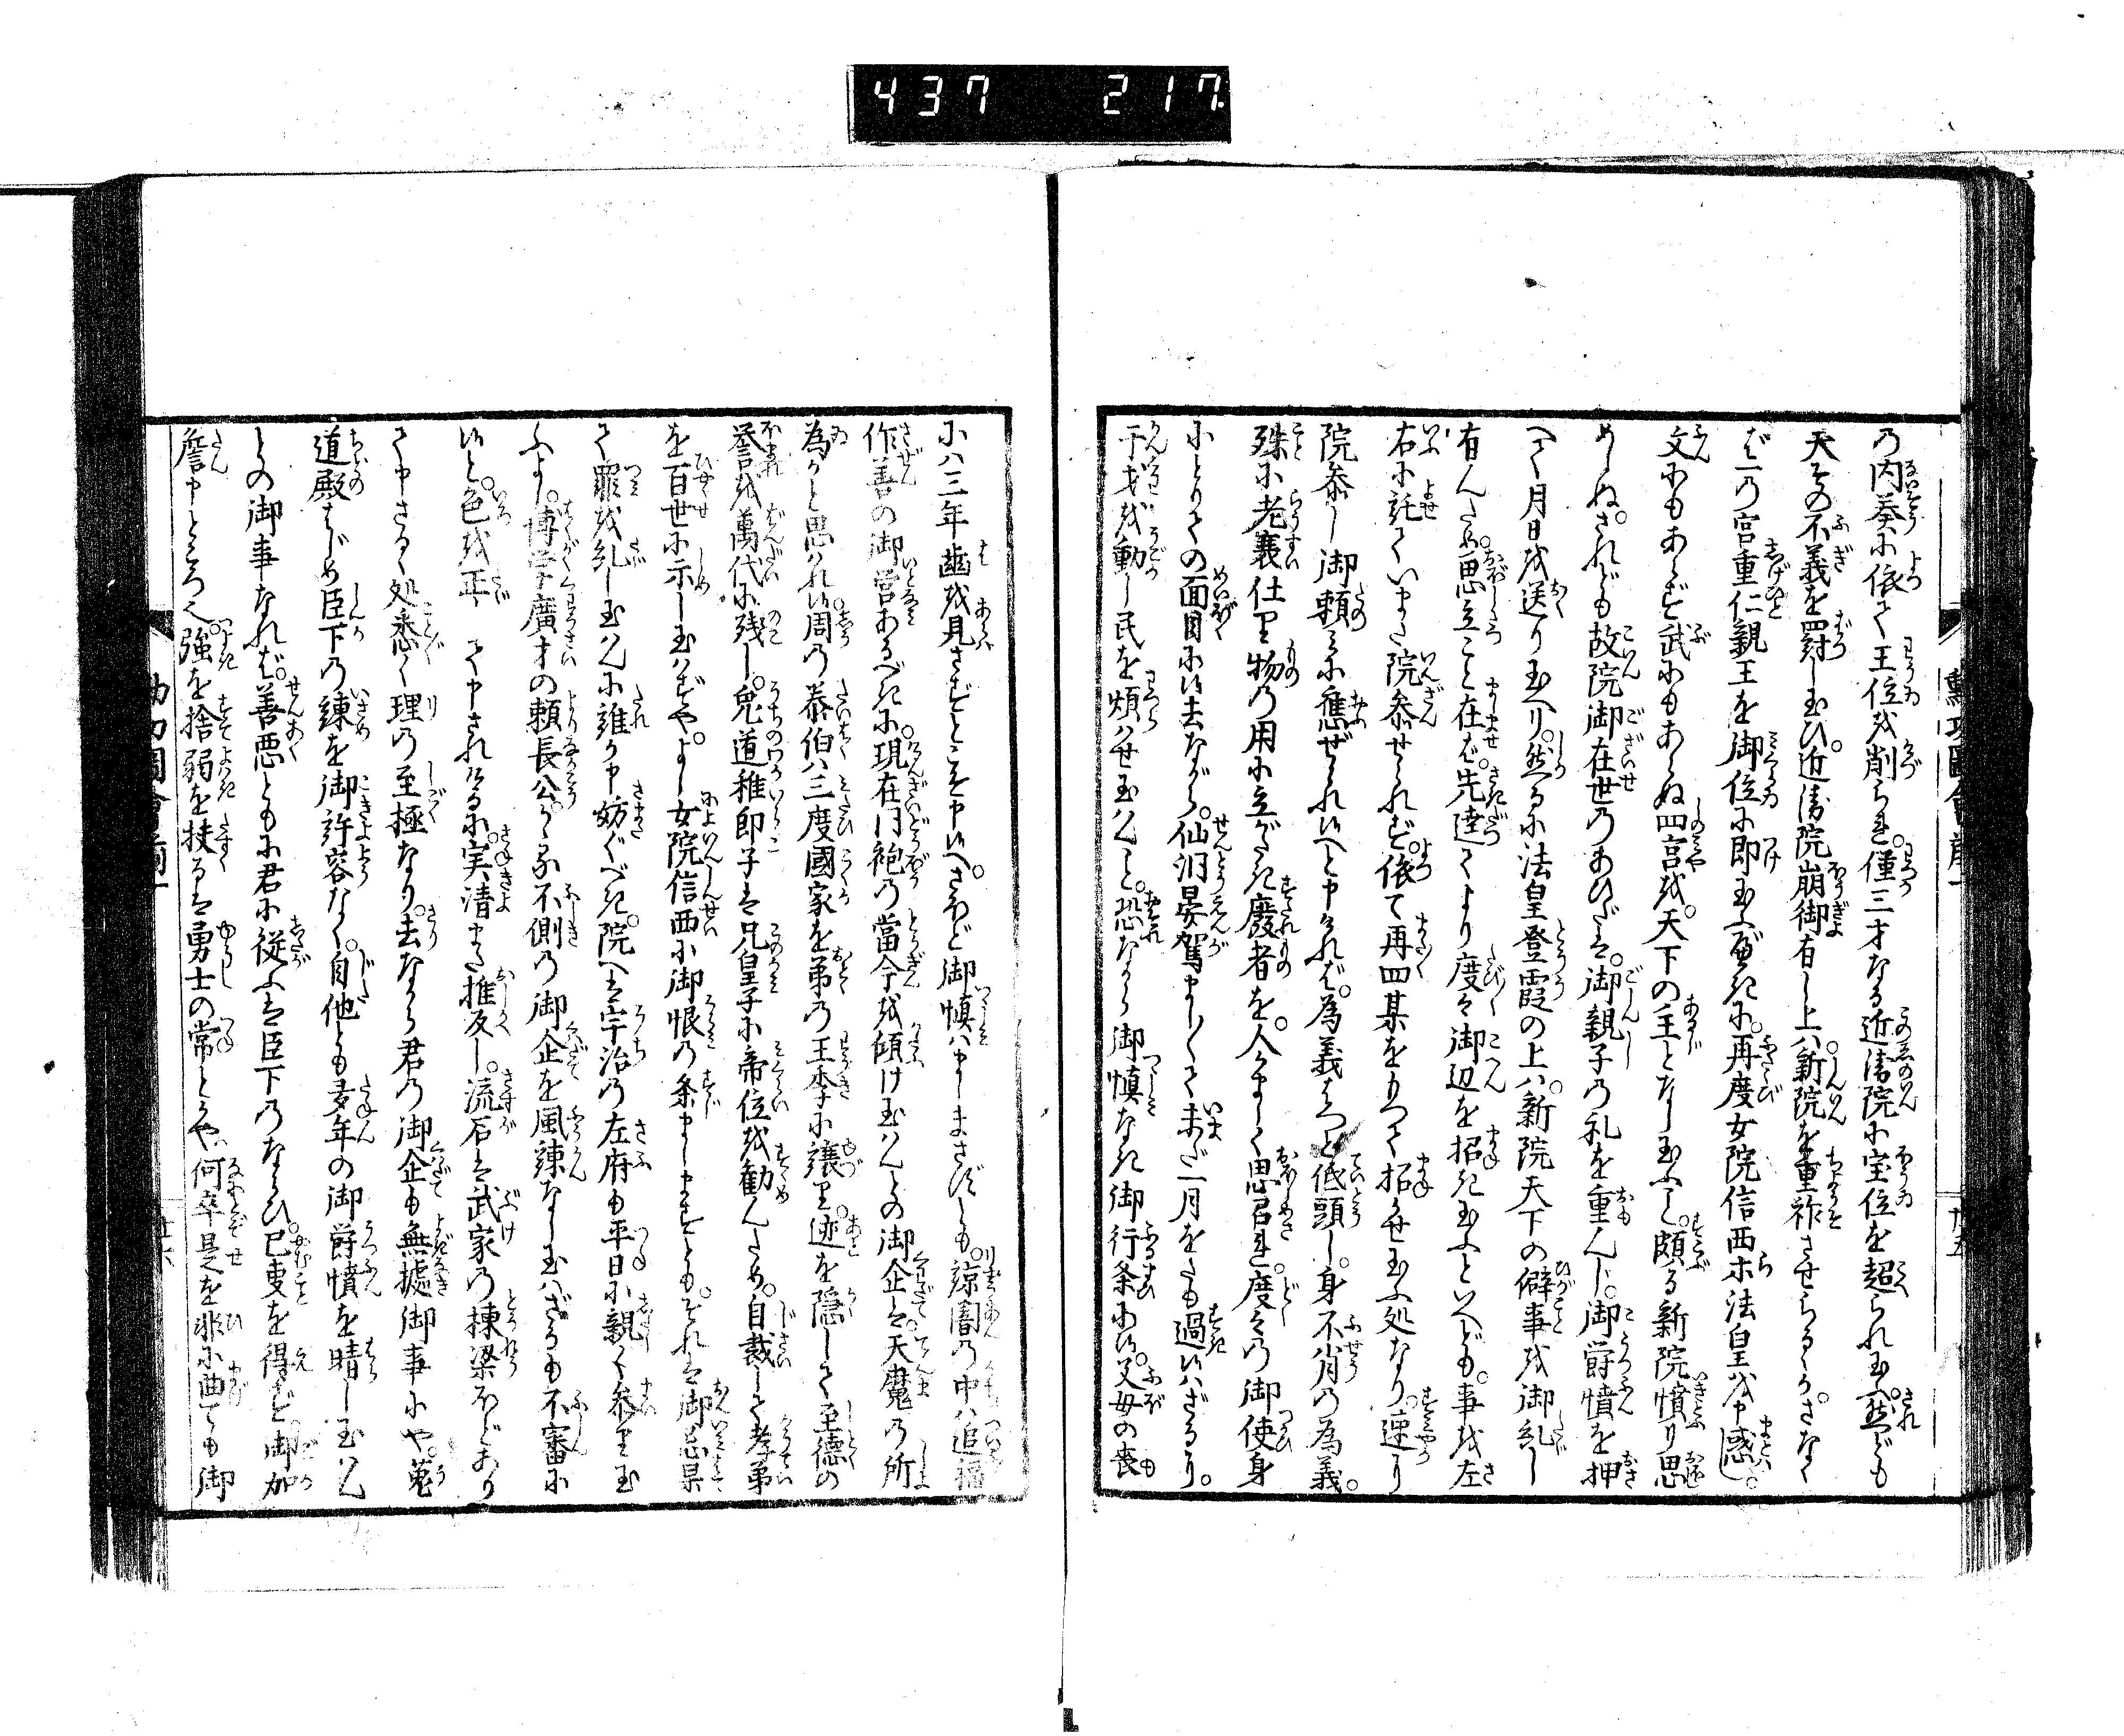 437 217.
乃内奏に依て王位を削られ。僅三才なる近衛院に宝位を超られ玉へ然ども
天その不義を罰し玉ひ。近衛院崩御有し上ハ。新院を重祚させらるゝか。さなく
ば一の宮重仁親王を御位に即玉ふべきに。再度女院信西ホ法皇を申惑し。
文にもあらず武にもあらぬ四宮を。天下の主となし玉ふと。頗る新院憤り思
めしぬ。されども故院御在世のあひだは。御親子の礼を重んじ。御欝憤を押
へて月日を送り玉へり。然るに法皇登霞の上ハ。新院天下の僻事を御糺し
有んため。思立こと在ば。先達てより度々御辺を招き玉ふといへども。事を左
右に託ていまだ院参せられず。依て再四某をもつて招かせ玉ふ処なり。速に
院参し御頼みに應ぜられ候へと申ければ。為義はつと低頭し。身不肖の為義。
殊に老衰仕り物の用に立がたき廢者を。人がましく思召れ。度々の御使身
にとりての面目に候去ながら。仙洞晏駕ましゝて未だ一月をだも過候ハざるに。
干戈を動し民を煩ハせ玉ハんこと。恐ながら御慎なき御行条に候。父母の喪
にハ三年歯を見さずとこそ申候へ。さほど御慎ハましまさずとも。諒闇の中ハ追福
作善の御営あるべきに。現在同袍の當今を傾け玉ハんとの御企は。天魔の所
為かと思ハれ候。周の泰伯ハ三度國家を弟の王季に譲り。迹を隠して至徳の
誉を萬代に残し。兎道稚郎子は兄皇子に帝位を勧んため。自裁して孝弟
を百世に示し玉ハずや。よし女院信西に御恨の条ましますとも。それは御忌果
て罪を糺し玉ハんに誰か申妨ぐべき。院へは宇治の左府も平日に親く参り玉
ふよし。博学廣才の頼長公。かゝる不側の御企を風諫なし玉ハざるも不審に
候と。色を正して申されけるに。実清また推反し。流石は武家の棟梁ほどあり
て申さるゝ処悉く理の至極なり。去ながら君の御企も無據御事にや。菟
道殿はじめ臣下の諫を御許容なく。自他とも多年の御欝憤を晴し玉ハん
との御事なれば。善悪ともに君に従ふは臣下のならひ。已事を得ず御加
擔申ところ也。強を捨弱を扶るは勇士の常とかや。何卒是を非に曲ても御